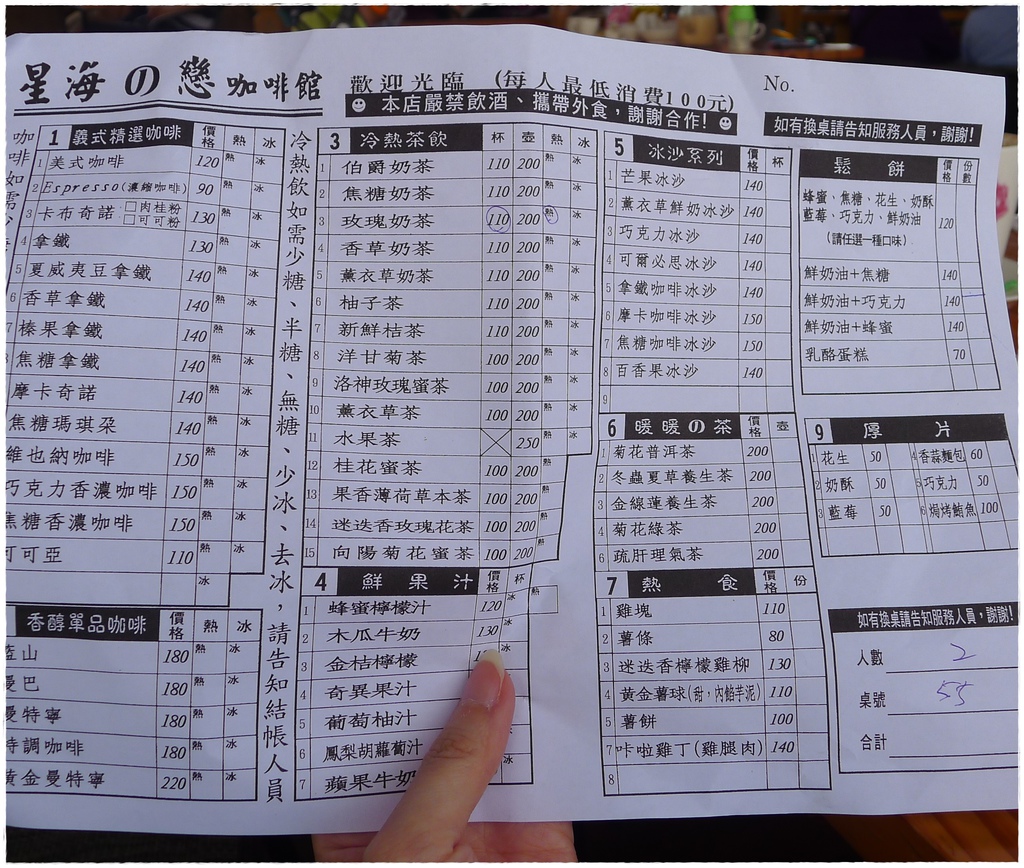 星海の戀咖啡館
歡迎光臨 (每人最低消費100元)
No.
本店嚴禁飲酒、攜帶外食，謝謝合作!
如有換桌請告知服務人員，謝謝!
1 義式精選咖啡 價格 熱 冰
1 美式咖啡 120 熱 冰
2 Espresso(濃縮咖啡) 90 熱 冰
3 卡布奇諾 □肉桂粉 □可可粉 130 熱 冰
4 拿鐵 130 熱 冰
5 夏威夷豆拿鐵 140 熱 冰
6 香草拿鐵 140 熱 冰
7 榛果拿鐵 140 熱 冰
8 焦糖拿鐵 140 熱 冰
摩卡奇諾 140 熱 冰
焦糖瑪琪朵 140 熱 冰
維也納咖啡 150 熱 冰
巧克力香濃咖啡 150 熱 冰
焦糖香濃咖啡 150 熱 冰
可可亞 110 熱 冰
冰
香醇單品咖啡 價格 熱 冰
藍山 180 熱 冰
曼巴 180 熱 冰
曼特寧 180 熱 冰
特調咖啡 180 熱 冰
黃金曼特寧 220 熱 冰
咖啡如需少
冷熱飲如需少糖、半糖、無糖、少冰、去冰，請告知結帳人員
3 冷熱茶飲 杯 壺 熱 冰
1 伯爵奶茶 110 200 熱 冰
2 焦糖奶茶 110 200 熱 冰
3 玫瑰奶茶 110 200 熱 冰
4 香草奶茶 110 200 熱 冰
5 薰衣草奶茶 110 200 熱 冰
6 柚子茶 110 200 熱 冰
7 新鮮桔茶 110 200 熱 冰
8 洋甘菊茶 100 200 熱 冰
9 洛神玫瑰蜜茶 100 200 熱 冰
10 薰衣草茶 100 200 熱 冰
11 水果茶 250 熱 冰
12 桂花蜜茶 100 200 熱
13 果香薄荷草本茶 100 200 熱
14 迷迭香玫瑰花茶 100 200 熱
15 向陽菊花蜜茶 100 200 熱
4 鮮果汁 價格 杯
1 蜂蜜檸檬汁 120 冰 熱
2 木瓜牛奶 130 冰
3 金桔檸檬 冰
4 奇異果汁
5 葡萄柚汁
6 鳳梨胡蘿蔔汁
7 蘋果牛奶
5 冰沙系列 價格 杯
1 芒果冰沙 140
2 薰衣草鮮奶冰沙 140
3 巧克力冰沙 140
4 可爾必思冰沙 140
5 拿鐵咖啡冰沙 140
6 摩卡咖啡冰沙 150
7 焦糖咖啡冰沙 150
8 百香果冰沙 140
9
6 暖暖の茶 價格 壺
1 菊花普洱茶 200
2 冬蟲夏草養生茶 200
3 金線蓮養生茶 200
4 菊花綠茶 200
6 疏肝理氣茶 200
7 熱食 價格 份
1 雞塊 110
2 薯條 80
3 迷迭香檸檬雞柳 130
4 黃金薯球(甜，內餡芋泥) 110
5 薯餅 100
7 咔啦雞丁(雞腿肉) 140
8
鬆餅 價格 份數
蜂蜜、焦糖、花生、奶酥
藍莓、巧克力、鮮奶油 120
(請任選一種口味)
鮮奶油+焦糖 140
鮮奶油+巧克力 140
鮮奶油+蜂蜜 140
乳酪蛋糕 70
9 厚片
1 花生 50 4 香蒜麵包 60
2 奶酥 50 5 巧克力 50
3 藍莓 50 6 焗烤鮪魚 100
如有換桌請告知服務人員，謝謝!
人數 2
桌號 55
合計